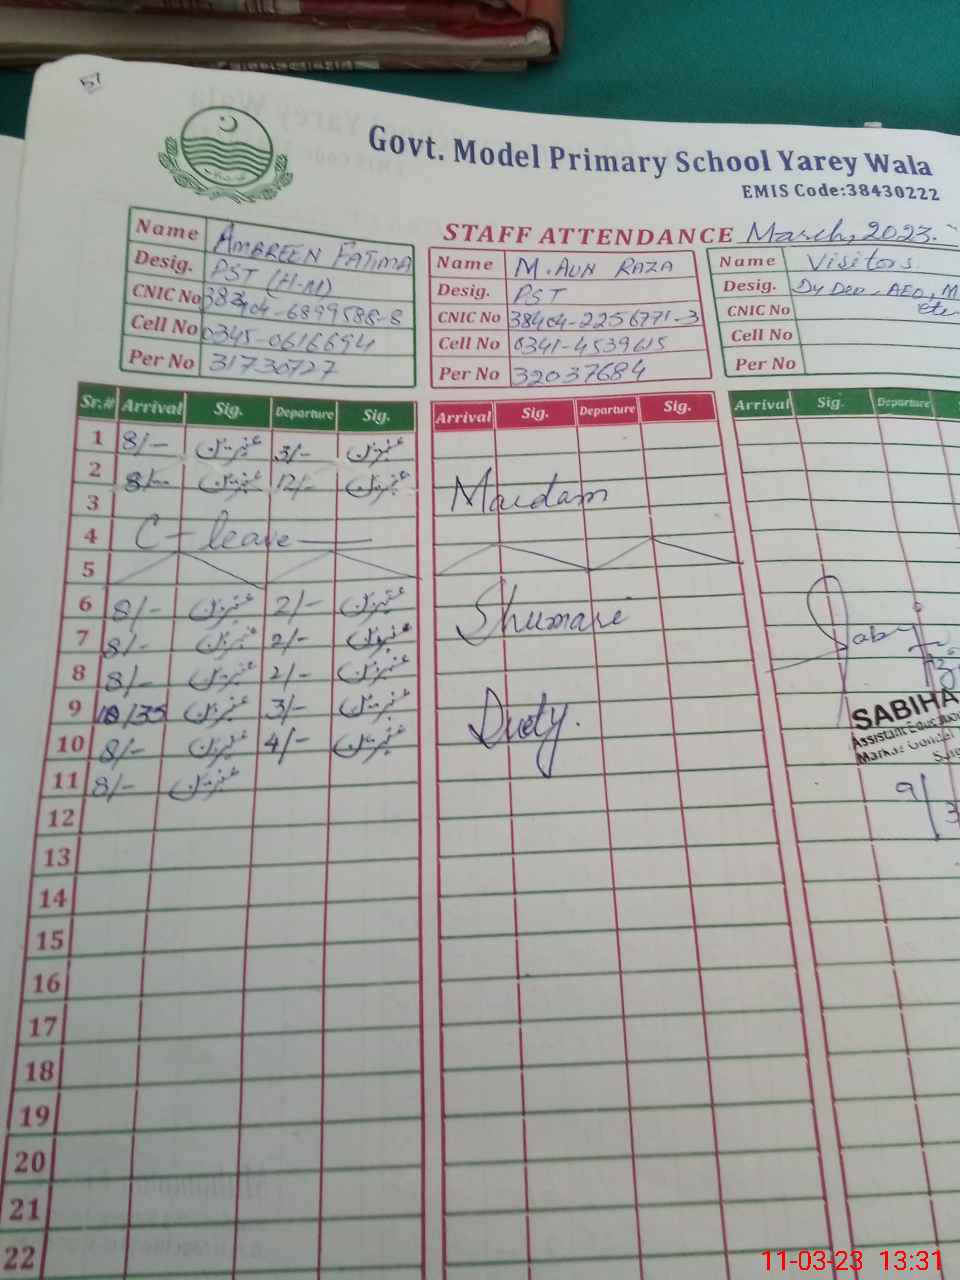 51
Govt. Model Primary School Yarey Wala
EMIS Code:38430222
STAFF ATTENDANCE March, 2023.
Name AMBREEN FATIMA
Desig. PST (H-M)
CNIC No 38404-6899588-8
Cell No 0345-0616694
Per No 31730727
Name M. AUN RAZA
Desig. PST
CNIC No 38404-2256771-3
Cell No 0341-4539615
Per No 32037684
Name Visitors
Desig. Dy Deo, AEO, M
etc
CNIC No
Cell No
Per No
Sr.# Arrival Sig. Departure Sig. Arrival Sig. Departure Sig. Arrival Sig. Departure S
1 8/- عنبرین 3/- عنبرین
2 8/- عنبرین 12/- عنبرین
3 Mardam
4 C-leave
5
6 8/- عنبرین 2/- عنبرین Shumari
7 8/- عنبرین 2/- عنبرین
8 8/- عنبرین 2/- عنبرین
9 10/35 عنبرین 3/- عنبرین Duty.
10 8/- عنبرین 4/- عنبرین
11 8/- عنبرین
12
13
14
15
16
17
18
19
20
21
22
SABIHA
Assistant Education
Markaz
9/3
11-03-23 13:31